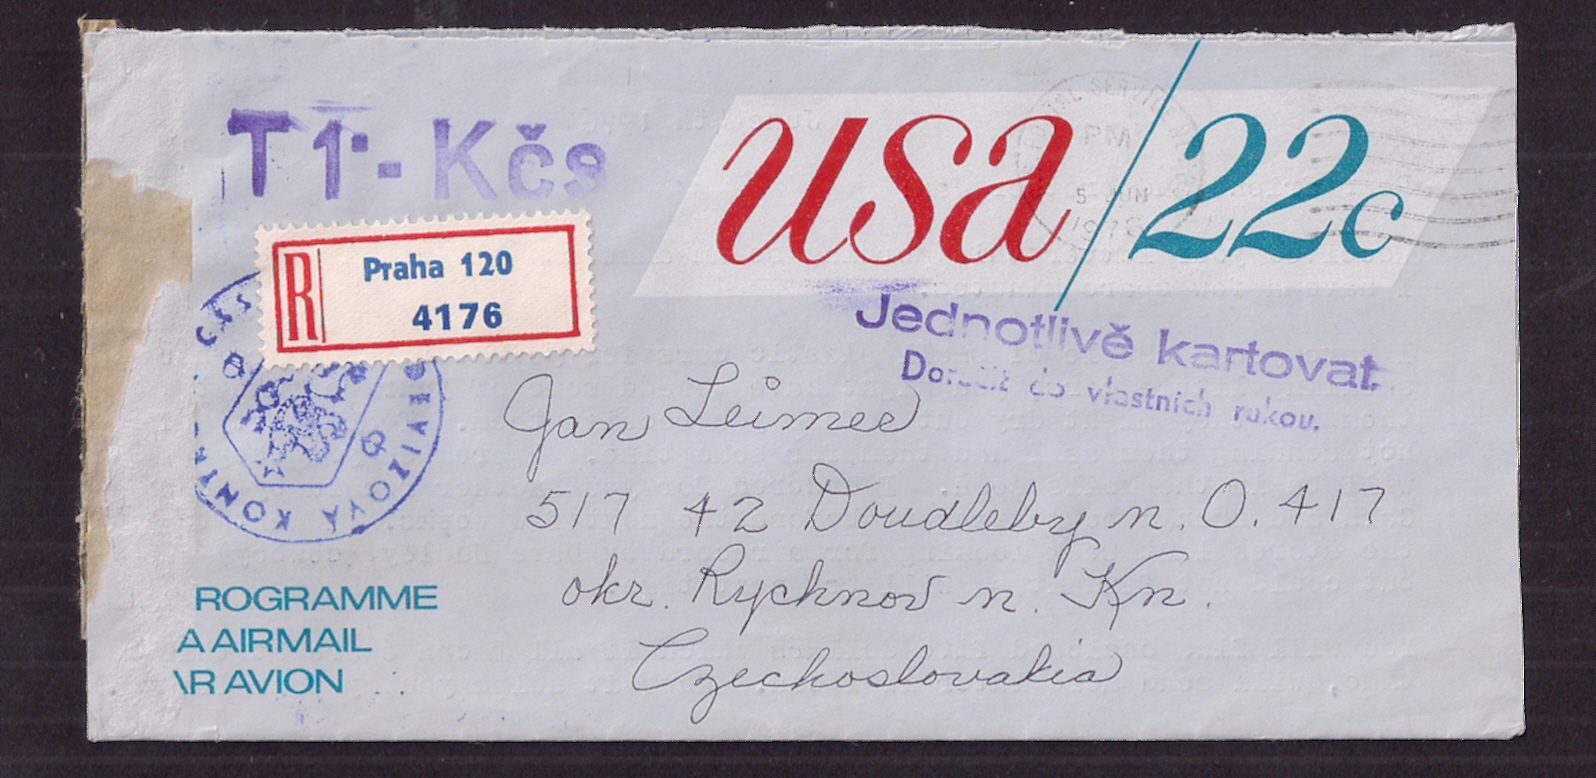 T 1·- Kčs
usa/22c
PM
5 JUN
R Praha 120
4176
Jednotlivě kartovat.
Doručit do vlastních rukou.
ČSSR
DEVIZOVÁ KONTROLA
Jan Leimer
517 42 Doudleby n. O. 417
okr. Rychnov n. Kn.
Czechoslovakia
ROGRAMME
A AIRMAIL
AR AVION